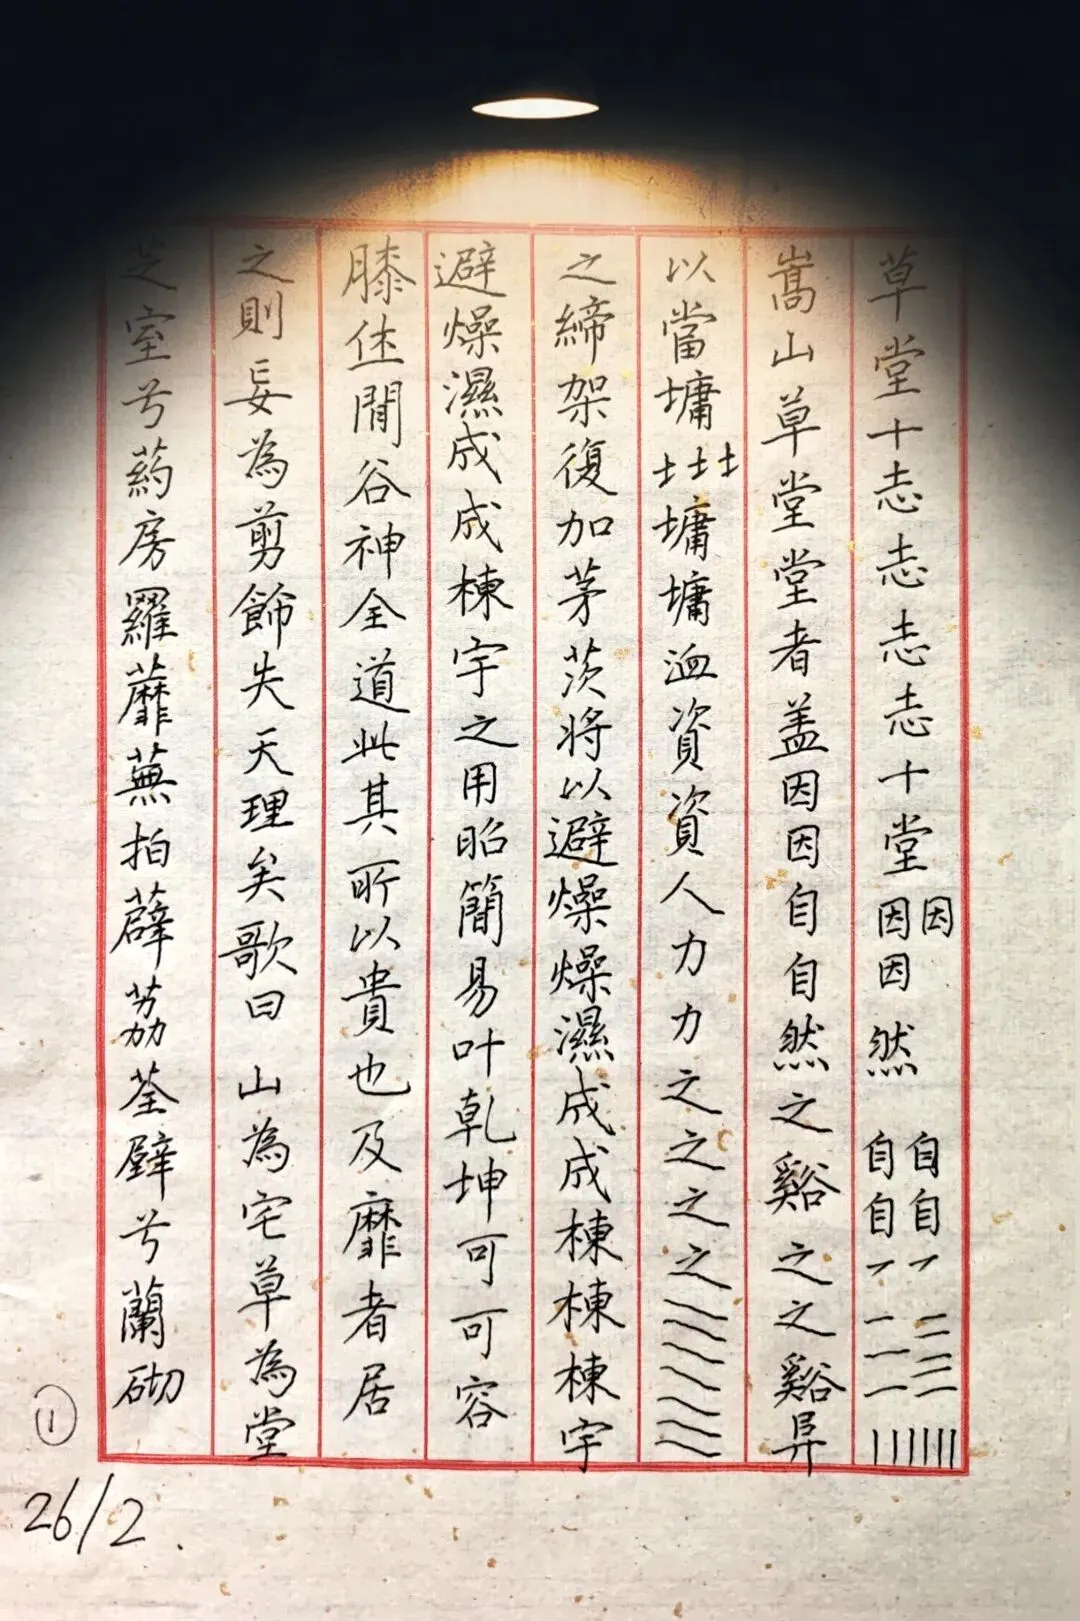 草堂十志志志志十堂因因因然自自自自
嵩山草堂堂者盖因因自自然之谿之之谿阜
以當墉土土土墉墉洫資資人力力之之之之
之締架復加茅茨將以避燥燥濕成成棟棟棟宇
避燥濕成成棟宇之用昭簡易叶乾坤可可可容
膝休閒谷神全道此其所以貴也及靡者居
之則妄為剪飾失天理矣歌曰山為宅草為堂
芝室兮葯房羅蘼蕪拍薜荔荃壁兮蘭砌
①
26/2.